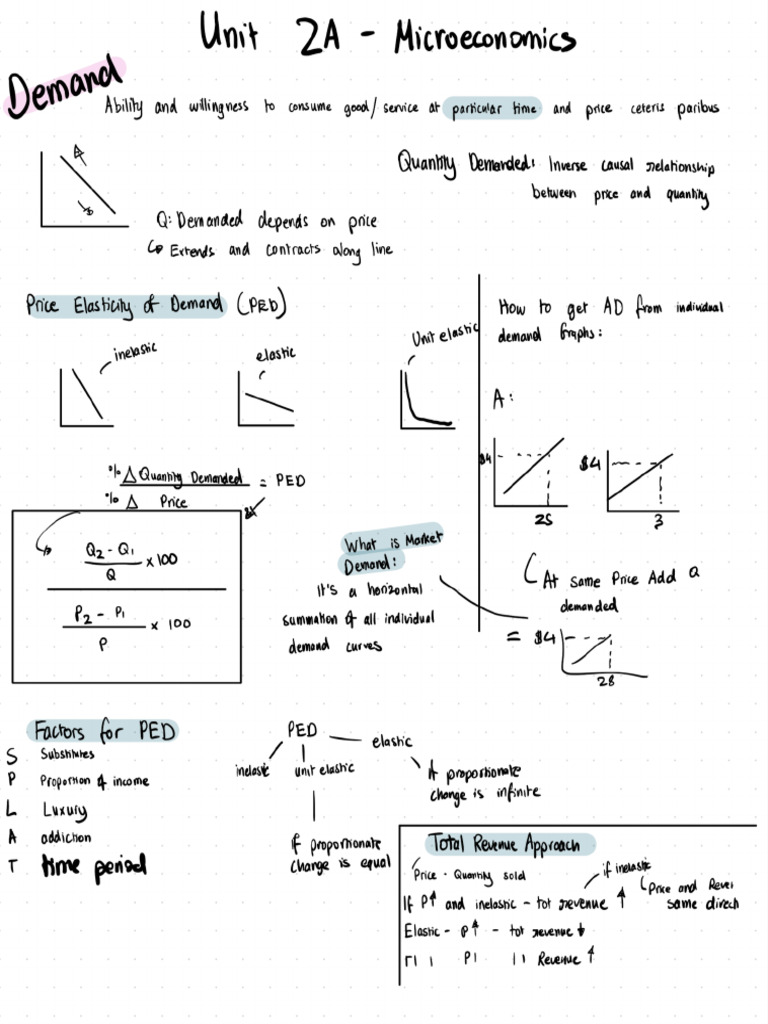 Unit 2A - Microeconomics
Demand
Ability and willingness to consume good/service at particular time and price ceteris paribus
Quantity Demanded: Inverse causal relationship
between price and quantity
Q: Demanded depends on price
↳ Extends and contracts along line
Price Elasticity of Demand (PED)
inelastic
elastic
Unit elastic
% Δ Quantity Demanded = PED
% Δ Price
Q2 - Q1 × 100
Q
P2 - P1 × 100
P
What is Market
Demand:
It's a horizontal
summation of all individual
demand curves
How to get AD from individual
demand Graphs:
A:
$4
25
$4
3
At same Price Add Q
demanded
= $4
28
Factors for PED
S Substitutes
P Proportion of income
L Luxury
A addiction
T time period
PED
inelastic
unit elastic
elastic
if proportionate
change is equal
if proportionate
change is infinite
Total Revenue Approach
Price · Quantity sold
if inelastic
Price and Rever
same direch
If P↑ and inelastic - tot revenue ↑
Elastic - P↑ - tot revenue ↓
Revenue ↑